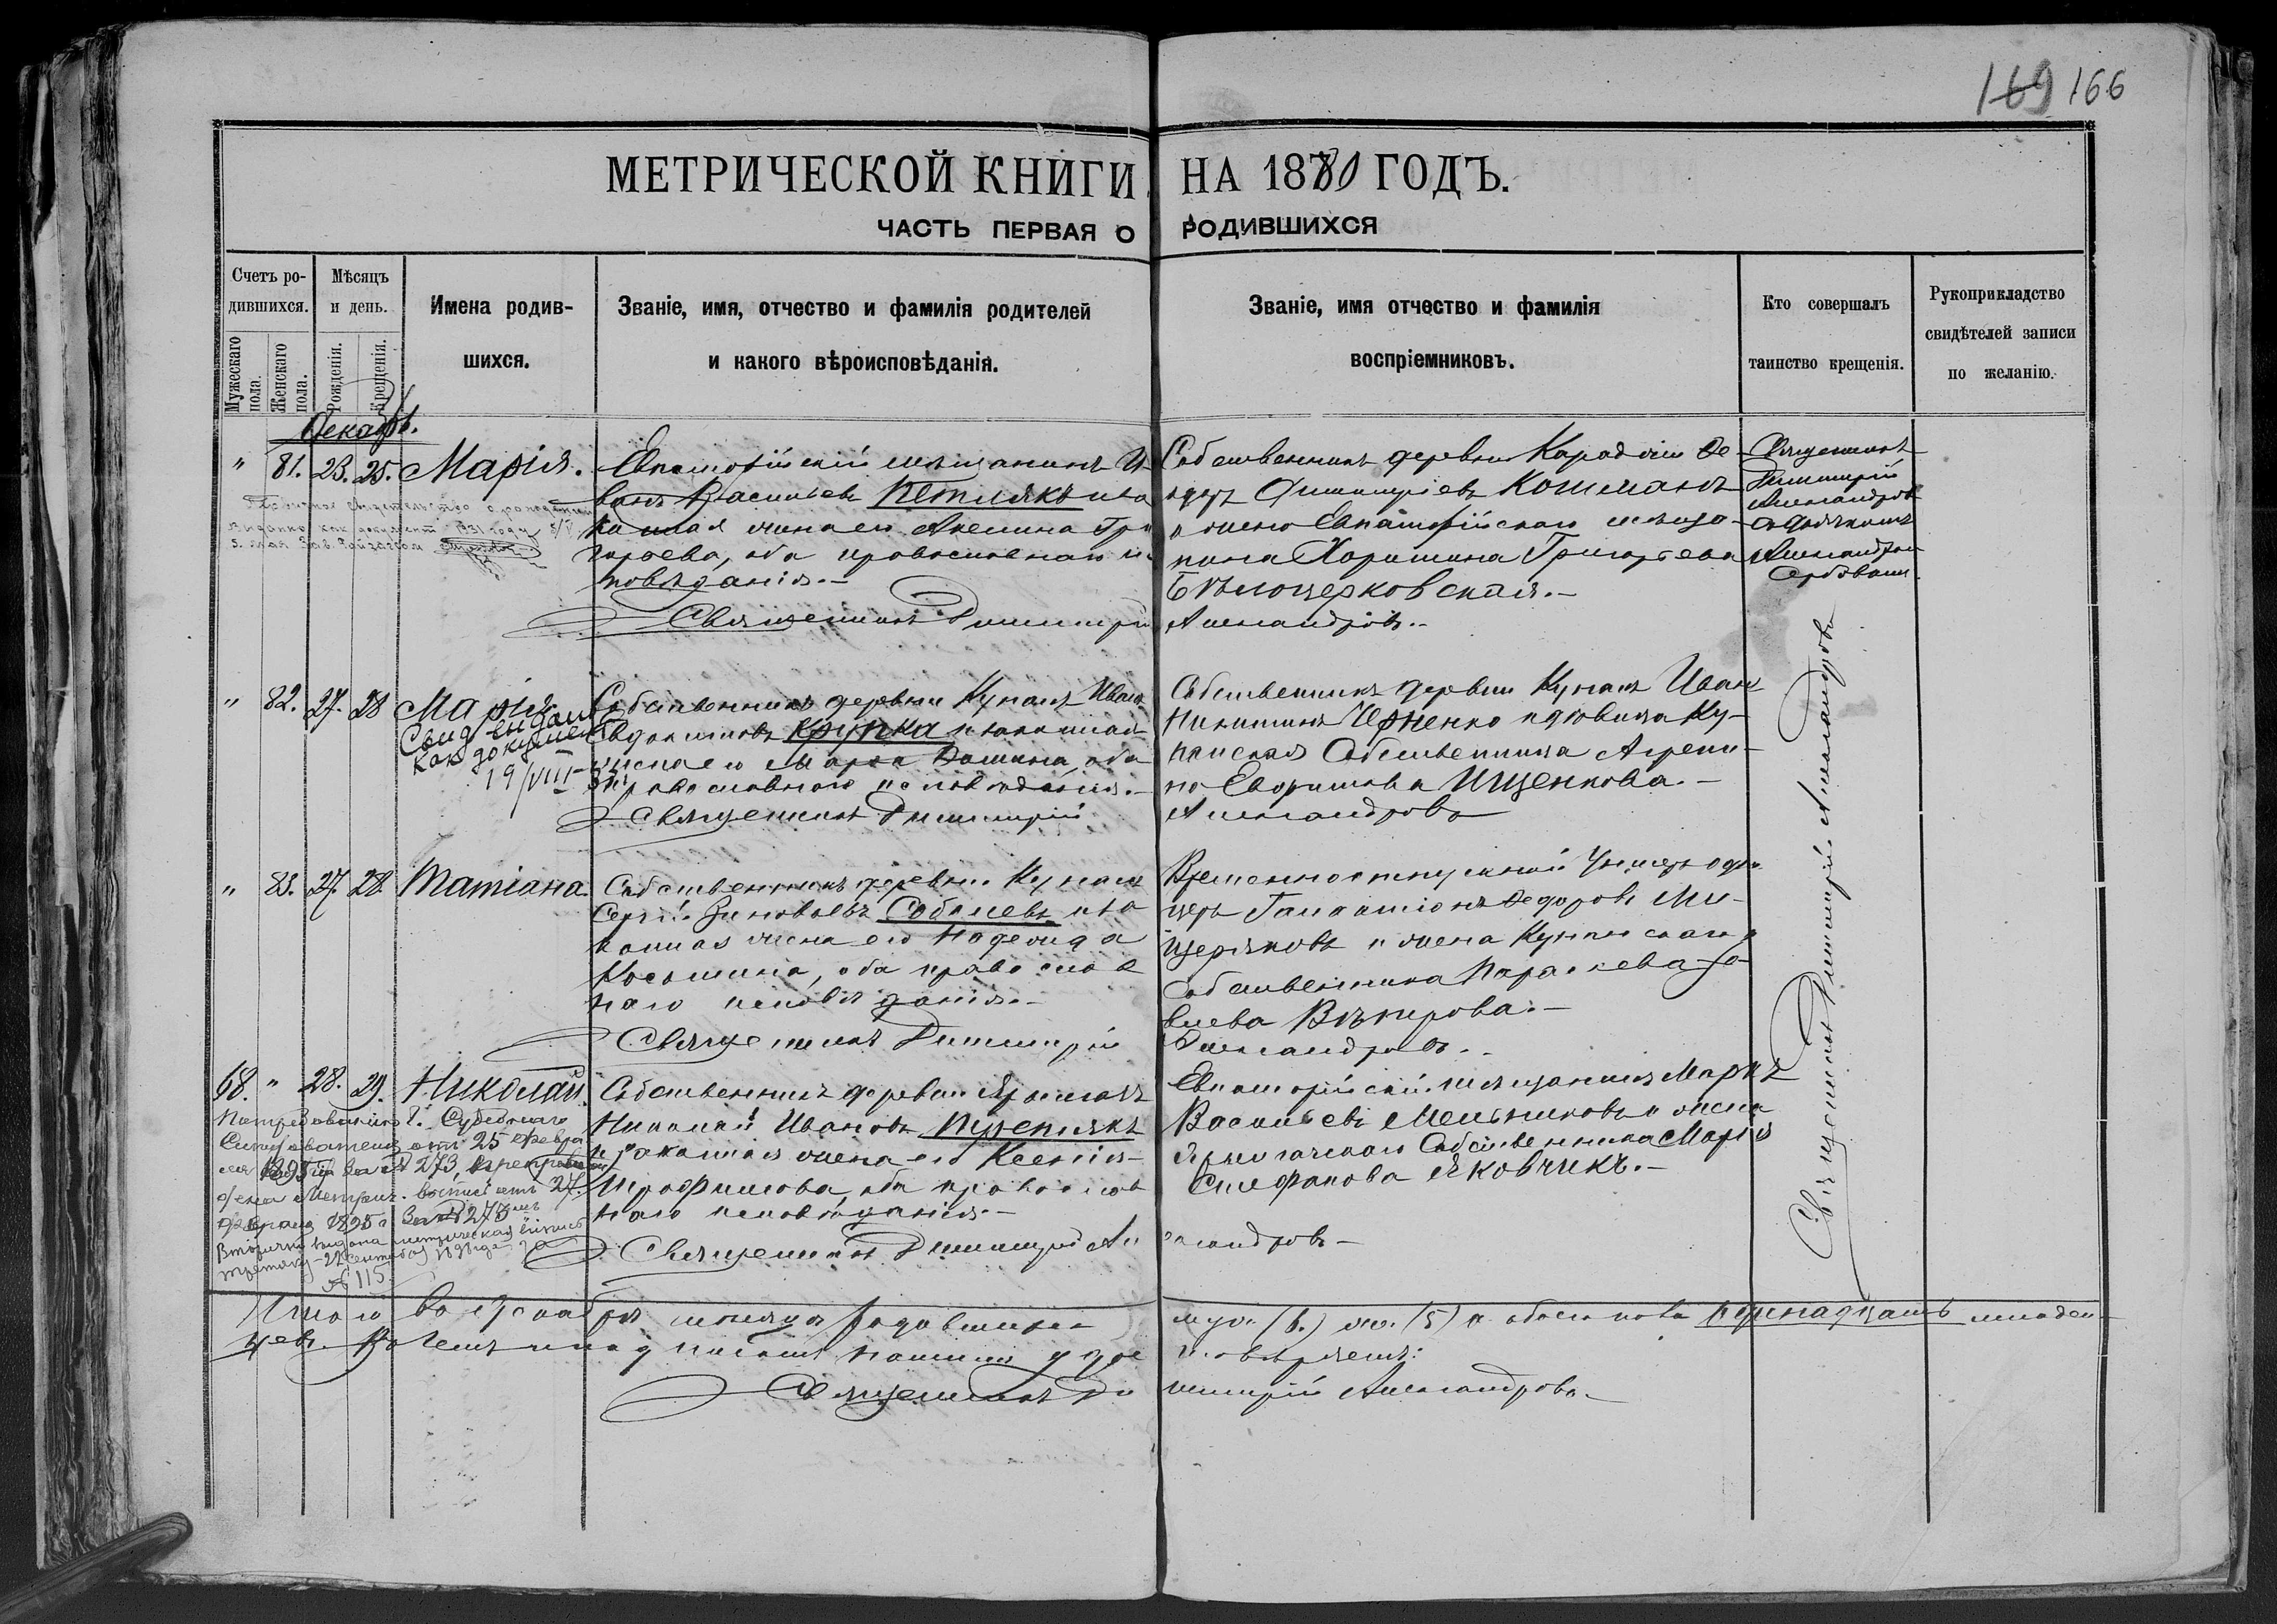 169 166
МЕТРИЧЕСКОЙ КНИГИ НА 1880 ГОДЪ.
ЧАСТЬ ПЕРВАЯ О РОДИВШИХСЯ
Счетъ ро-
дившихся.
Мужескаго
пола.
Женскаго
пола.
Мѣсяцъ
и день.
Рожденія.
Крещенія.
Имена родив-
шихся.
Званіе, имя, отчество и фамилія родителей
и какого вѣроисповѣданія.
Званіе, имя отчество и фамилія
воспріемниковъ.
Кто совершалъ
таинство крещенія.
Рукоприкладство
свидѣтелей записи
по желанію.
Декабрь.
" 81. 23. 25. Марія.
Евпаторійскій мѣщанинъ И-
ванъ Васильевъ Петлякъ и за
конная жена его Акелина Гри
горьева, оба православнаго ис
повѣданія.–
Священникъ Димитрій
Собственникъ деревни Караджи Ѳе-
одоръ Димитріевъ Кошманъ
и жена Евпаторійскаго мѣща-
нина Харитина Григорьева
Бѣлоцерковская.–
Александровъ.–
Священникъ
Димитрій
Александровъ
съ дьячкомъ
Александром
" 82. 27. 28 Марія
Свид выдано
как документ
19/VIII
Собственникъ деревни Кунанъ Иванъ
Евдокимовъ Крупка и законная
жена его Марѳа Фомина, оба
православнаго исповѣданія.–
Священникъ Димитрій
Собственникъ деревни Кунанъ Иванъ
Никитинъ Черненко и дѣвица Ку-
нанская Собственница Агрепи-
на Ищенкова.–
Александровъ
" 83. 27. 28. Татіана.
Собственникъ деревни Кунанъ
Сергій Зиновьевъ Соболевъ и за
конная жена его Надежда
Косьмина, оба православ
наго исповѣданія.–
Священникъ Димитрій
Временноотпускной Унтеръ офи
церъ Галактіонъ Ѳедоровъ Ме-
щеряковъ и жена Кунанскаго
Собственника Параскева
Александровъ.–
68. " 28. 29. Николай.
Собственникъ деревни Ярылгачъ
Николай Иванов
и законная жена его Ксенія
Трофимова, оба православ
наго исповѣданія.–
Священникъ Димитрій Алек
Евпаторійскій мѣщанинъ Маркъ
Васильевъ Мельниковъ и жена
Ярылгачскаго Собственника Марія
Стефанова Яковчикъ.–
сандровъ–
По требованію Г. Судебнаго
Слѣдователя отъ 25 Февра
ля 1895 года за № 273,
отъ 27.
Февраля 1895 г за №
Вторично выдана метрическая выпись
№ 115
Священникъ Димитрій Александровъ
Итого во Декабрѣ мѣсяцѣ родившихся муж. (6.) жен. (5) а обоего пола одинадцать младен-
цевъ. Въ чемъ и надписомъ нашимъ удостовѣряемъ:
Священникъ Димитрій Александровъ.